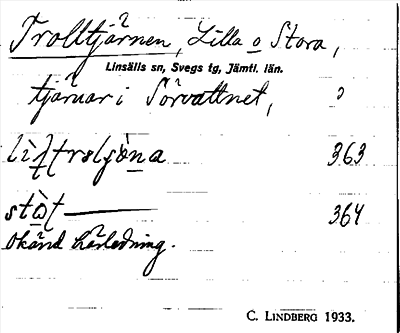 Trolltjärnen, Lilla o Stora,
Linsälls sn, Svegs tg, Jämtl. län.
tjärnar i Sörvattnet,
363
364
Okänd härledning.
C. LINDBERG 1933.